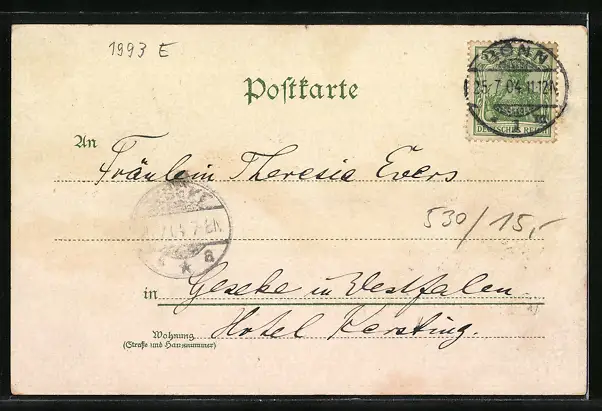 1993 E
BONN
25.7.04.11-12N.
1
DEUTSCHES REICH
Postkarte
An
Fräulein Theresia Evers
530/15,-
a
in
Geseke in Westfalen.
Hotel Kersting.
Wohnung
(Straße und Hausnummer)